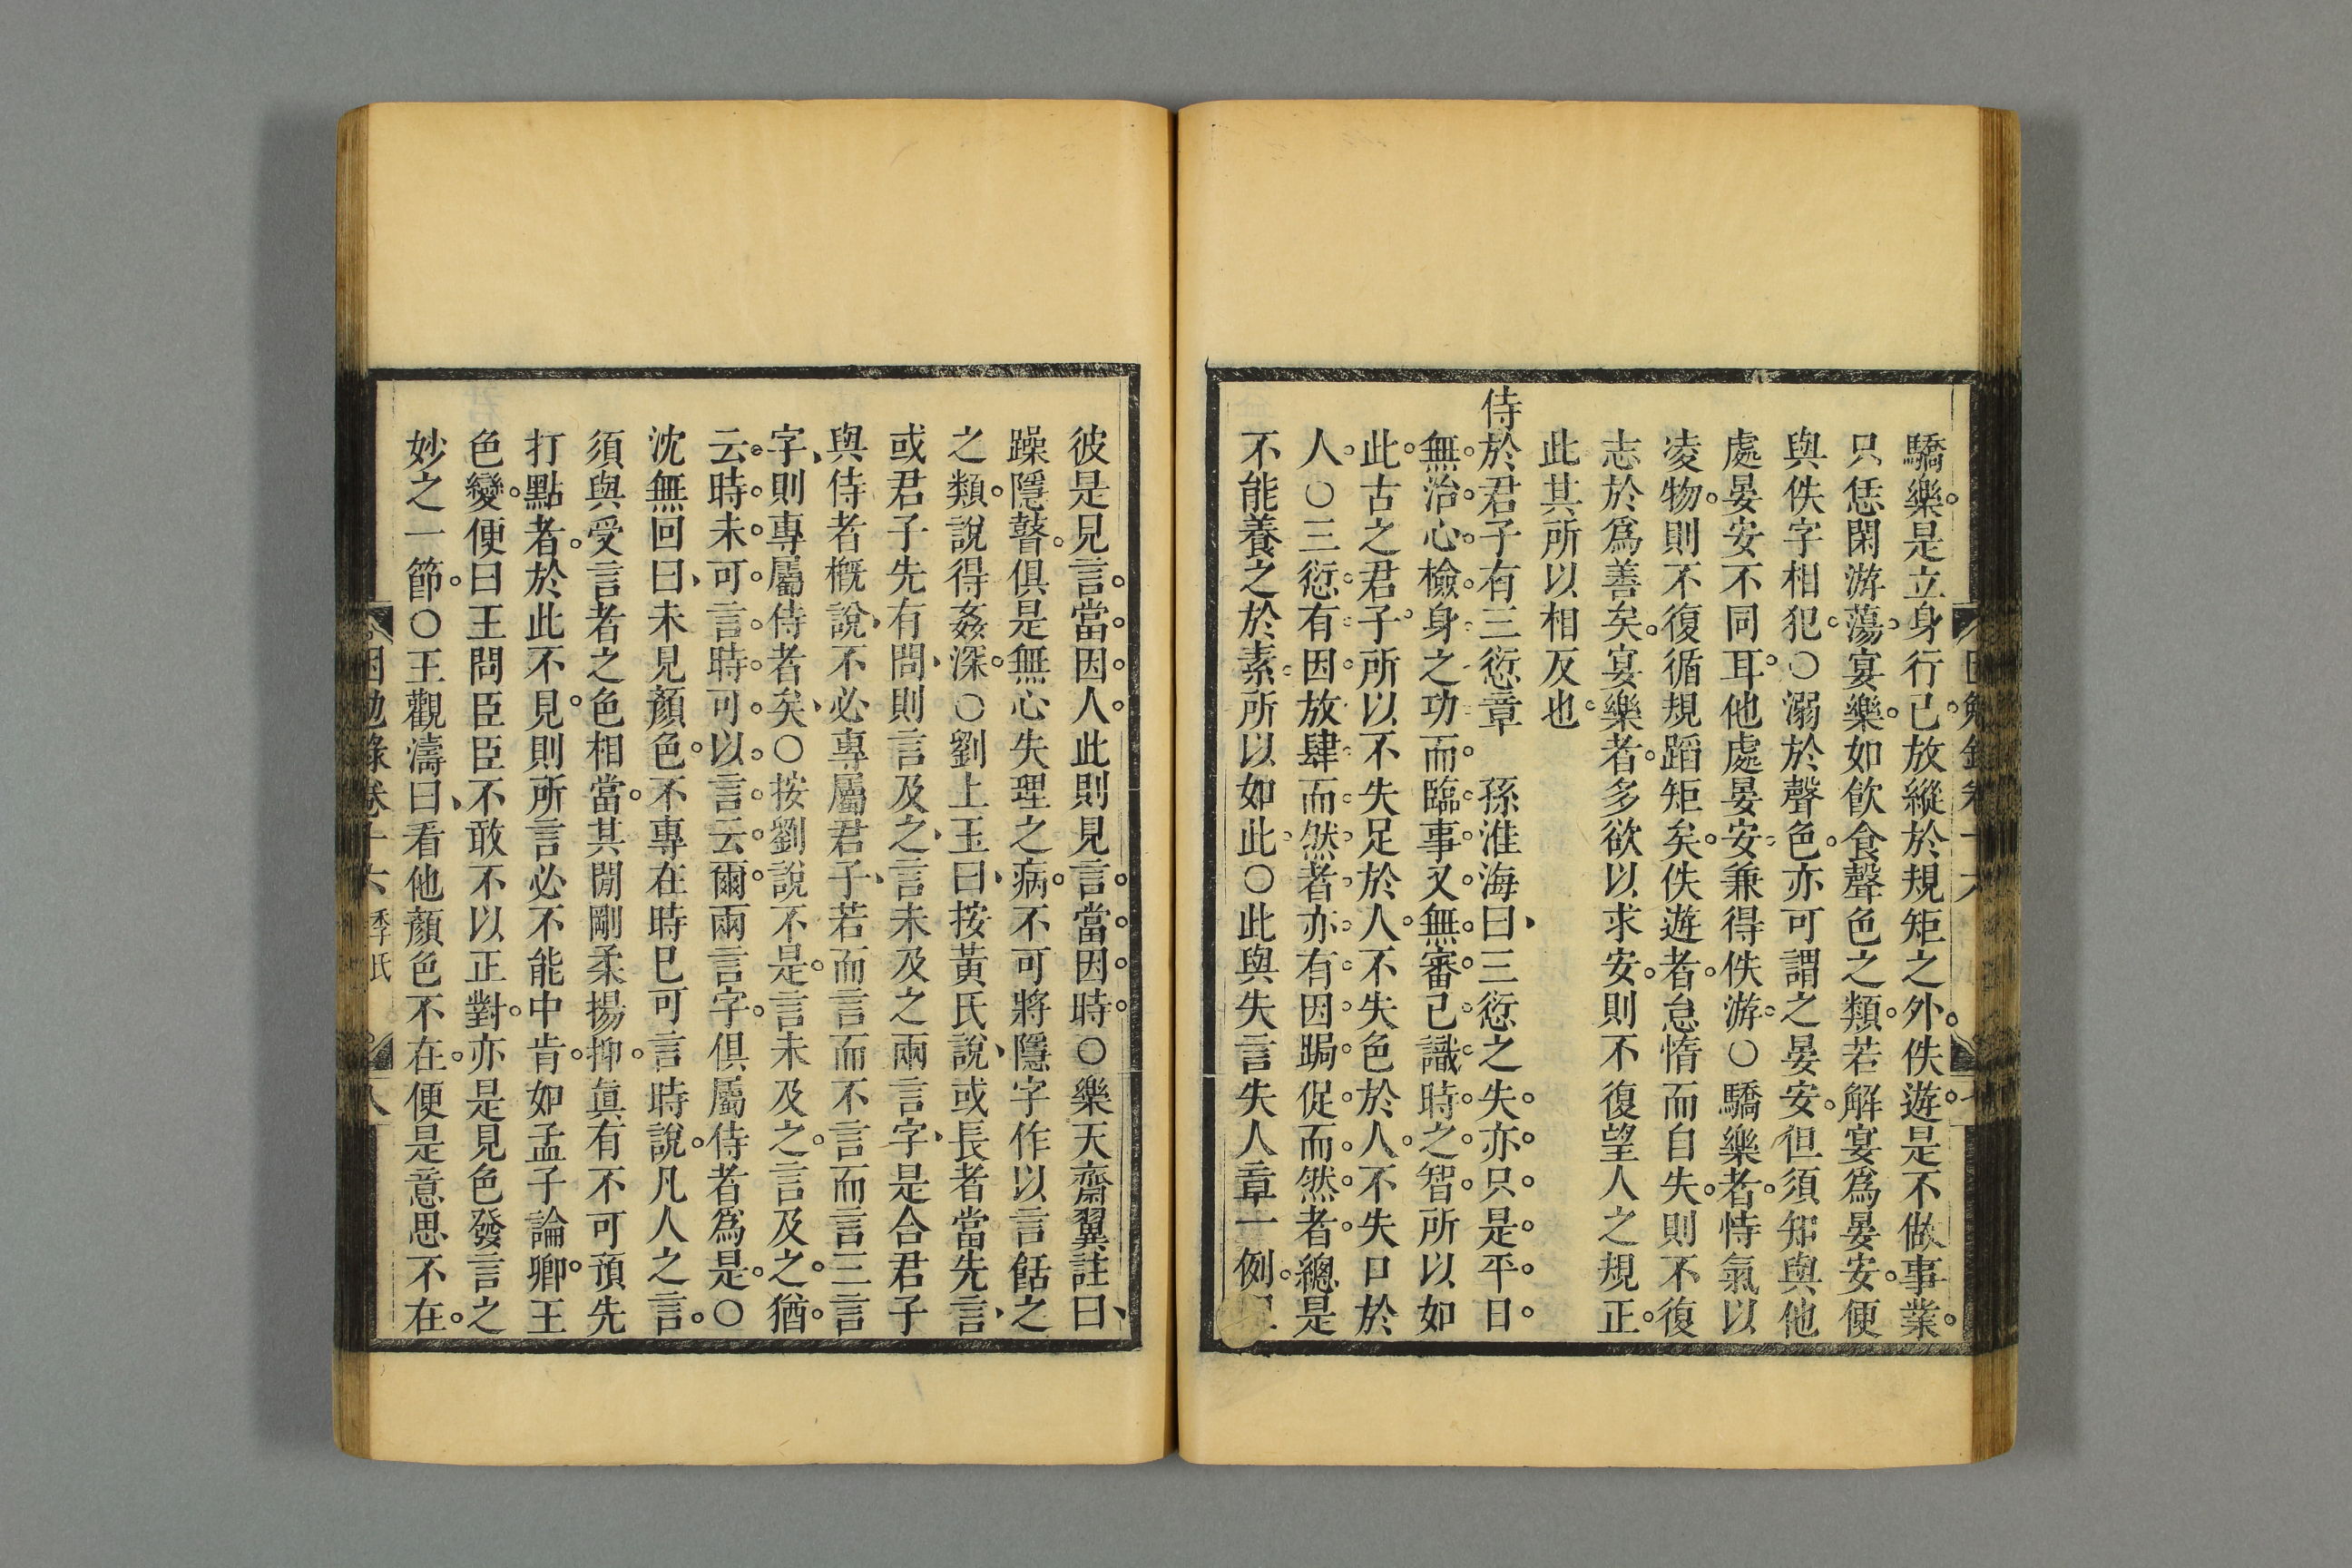 驕樂。是立身行已。放縱於規矩之外。佚遊。是不做事業。
只恁閑游蕩。宴樂。如飲食聲色之類。若解宴爲晏安。便
與佚字相犯。○溺於聲色。亦可謂之晏安。但須知與他
處晏安不同耳。他處晏安。兼得佚游。○驕樂者。恃氣以
凌物。則不復循規蹈矩矣。佚遊者。怠惰而自失。則不復
志於爲善矣。宴樂者。多欲以求安。則不復望人之規正。
此其所以相反也。
侍於君子有三愆章　孫淮海曰、三愆之失。亦只是平日。
無治心檢身之功而。臨事又無審己識時之智。所以如
此。古之君子。所以不失足於人。不失色於人。不失口於
人。○三愆有因放肆而然者。亦有因跼促而然者。總是
不能養之於素。所以如此。○此與失言失人章一例。
彼是見言。當因人。此則見言。當因時。○樂天齋翼註曰、
躁隱瞽。俱是無心失理之病。不可將隱字作以言餂之
之類。說得姦深。○劉上玉曰、按黃氏說、或長者當先言、
或君子先有問、則言及之、言未及之兩言字、是合君子
與侍者概說、不必專屬君子、若而言而不言而言三言
字、則專屬侍者矣、○按劉說不是。言未及之。言及之。猶。
云。時未可言。時可以言云爾。兩言字。俱屬侍者爲是。○
沈無回曰、未見顏色。不專在時已可言時說。凡人之言。
須與受言者之色相當。其閒剛柔揚抑。眞有不可預先
打點者。於此不見。則所言必不能中肯。如孟子論卿。王
色變。便曰王問臣臣不敢不以正對。亦是見色發言之
妙之一節。○王觀濤曰、看他顏色不在。便是意思不在。
困勉錄卷十六　季氏　八